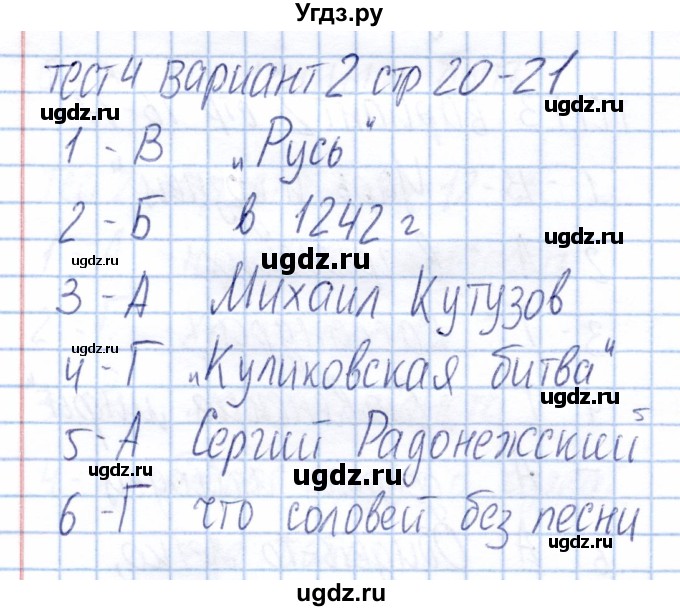 Угдз.ру
тест 4 вариант 2 стр 20-21
ugdz.ru ugdz.ru
1 - В „Русь“
ugdz.ru
2 - Б в 1242 г
ugdz.ru ugdz.ru ugdz.ru
3 - А Михаил Кутузов
ugdz.ru ugdz.ru
4 - Г „Куликовская битва“
ugdz.ru ugdz.ru
5 - А Сергий Радонежский 5
ugdz.ru ugdz.ru
6 - Г что соловей без песни
ugdz.ru ugdz.ru
ugdz.ru